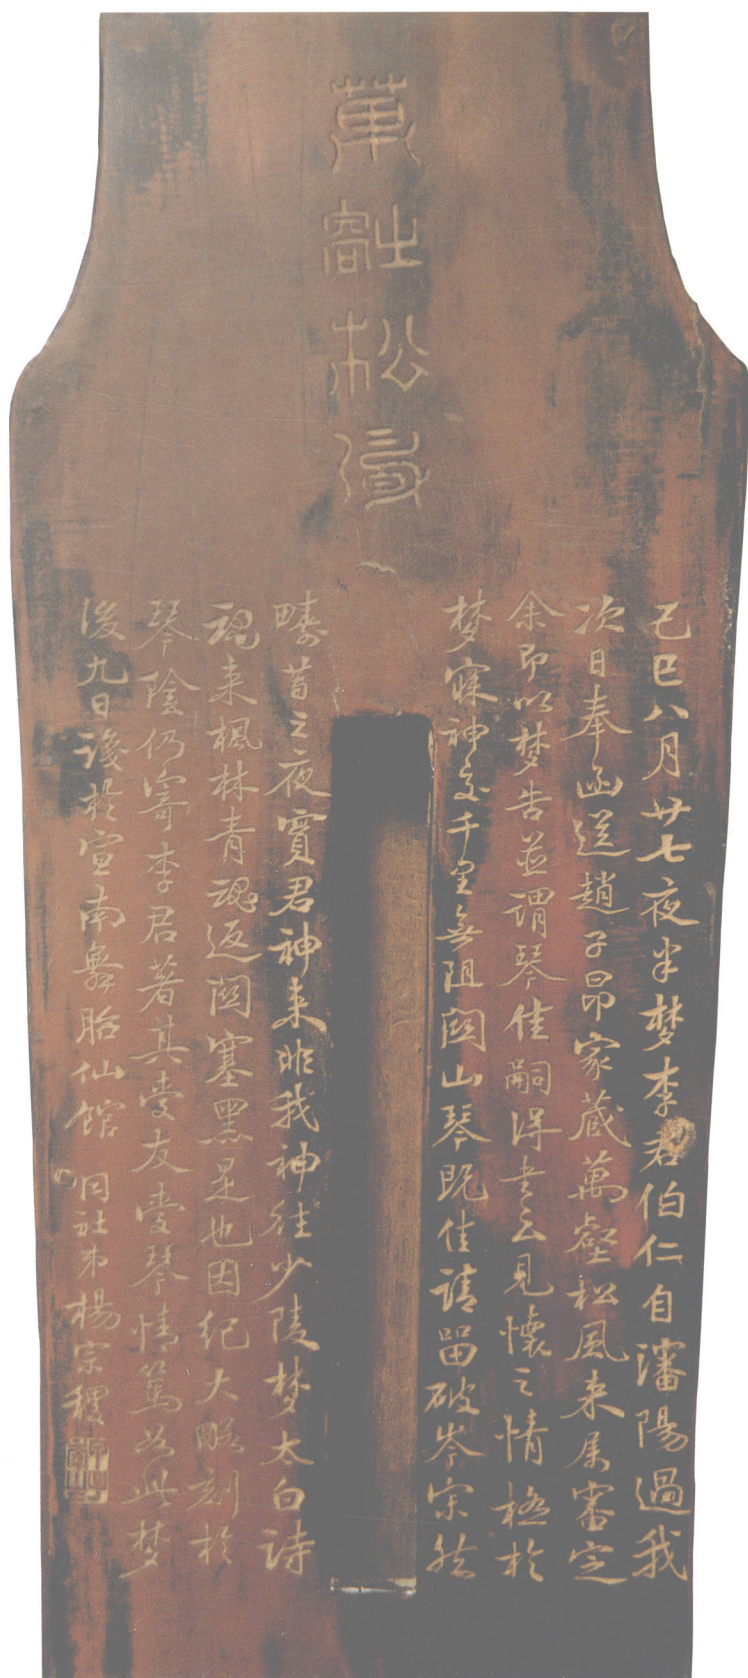 萬壑松風
己巳八月廿七夜半梦李君伯仁自瀋陽過我
次日奉函送趙子昂家藏萬壑松風来属審定
余即以梦告並謂琴佳嗣得書云見懷之情極於
梦寐神交千里無阻関山琴既佳請留破岑寂然
疇昔之夜實君神来非我神往少陵梦太白詩
魂来楓林青魂返関塞黑是也因纪大略刻於
琴陰仍寄李君著其愛友愛琴情篤如此梦
後九日識於宣南舞胎仙館 同社弟楊宗稷